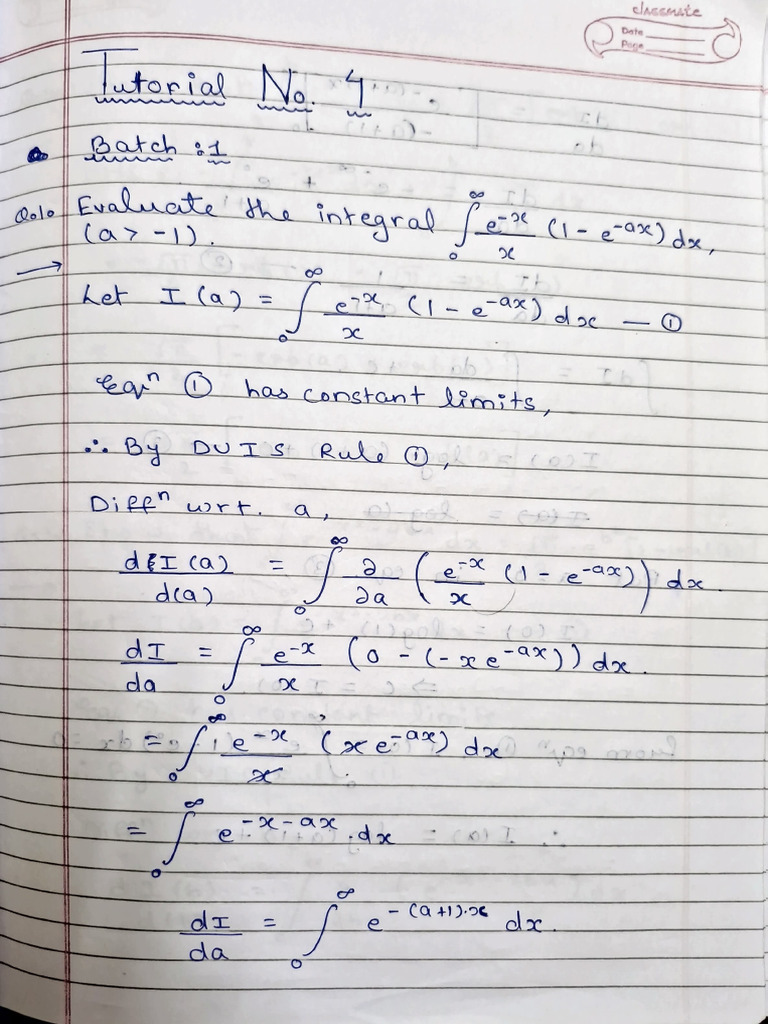 classmate
Date
Page
Tutorial No. 4
Batch : 1
Q.1. Evaluate the integral ∫₀^∞ e^-x/x (1 - e^-ax) dx,
(a > -1).
→
Let I(a) = ∫₀^∞ e^-x/x (1 - e^-ax) dx — ①
Eqⁿ ① has constant limits,
∴ By DUIS Rule ①,
Diffⁿ wrt. a,
dI(a)/d(a) = ∫₀^∞ ∂/∂a (e^-x/x (1 - e^-ax)) dx.
dI/da = ∫₀^∞ e^-x/x (0 - (-x e^-ax)) dx.
= ∫₀^∞ e^-x/x (x e^-ax) dx
= ∫₀^∞ e^-x-ax . dx
dI/da = ∫₀^∞ e^-(a+1).x dx.